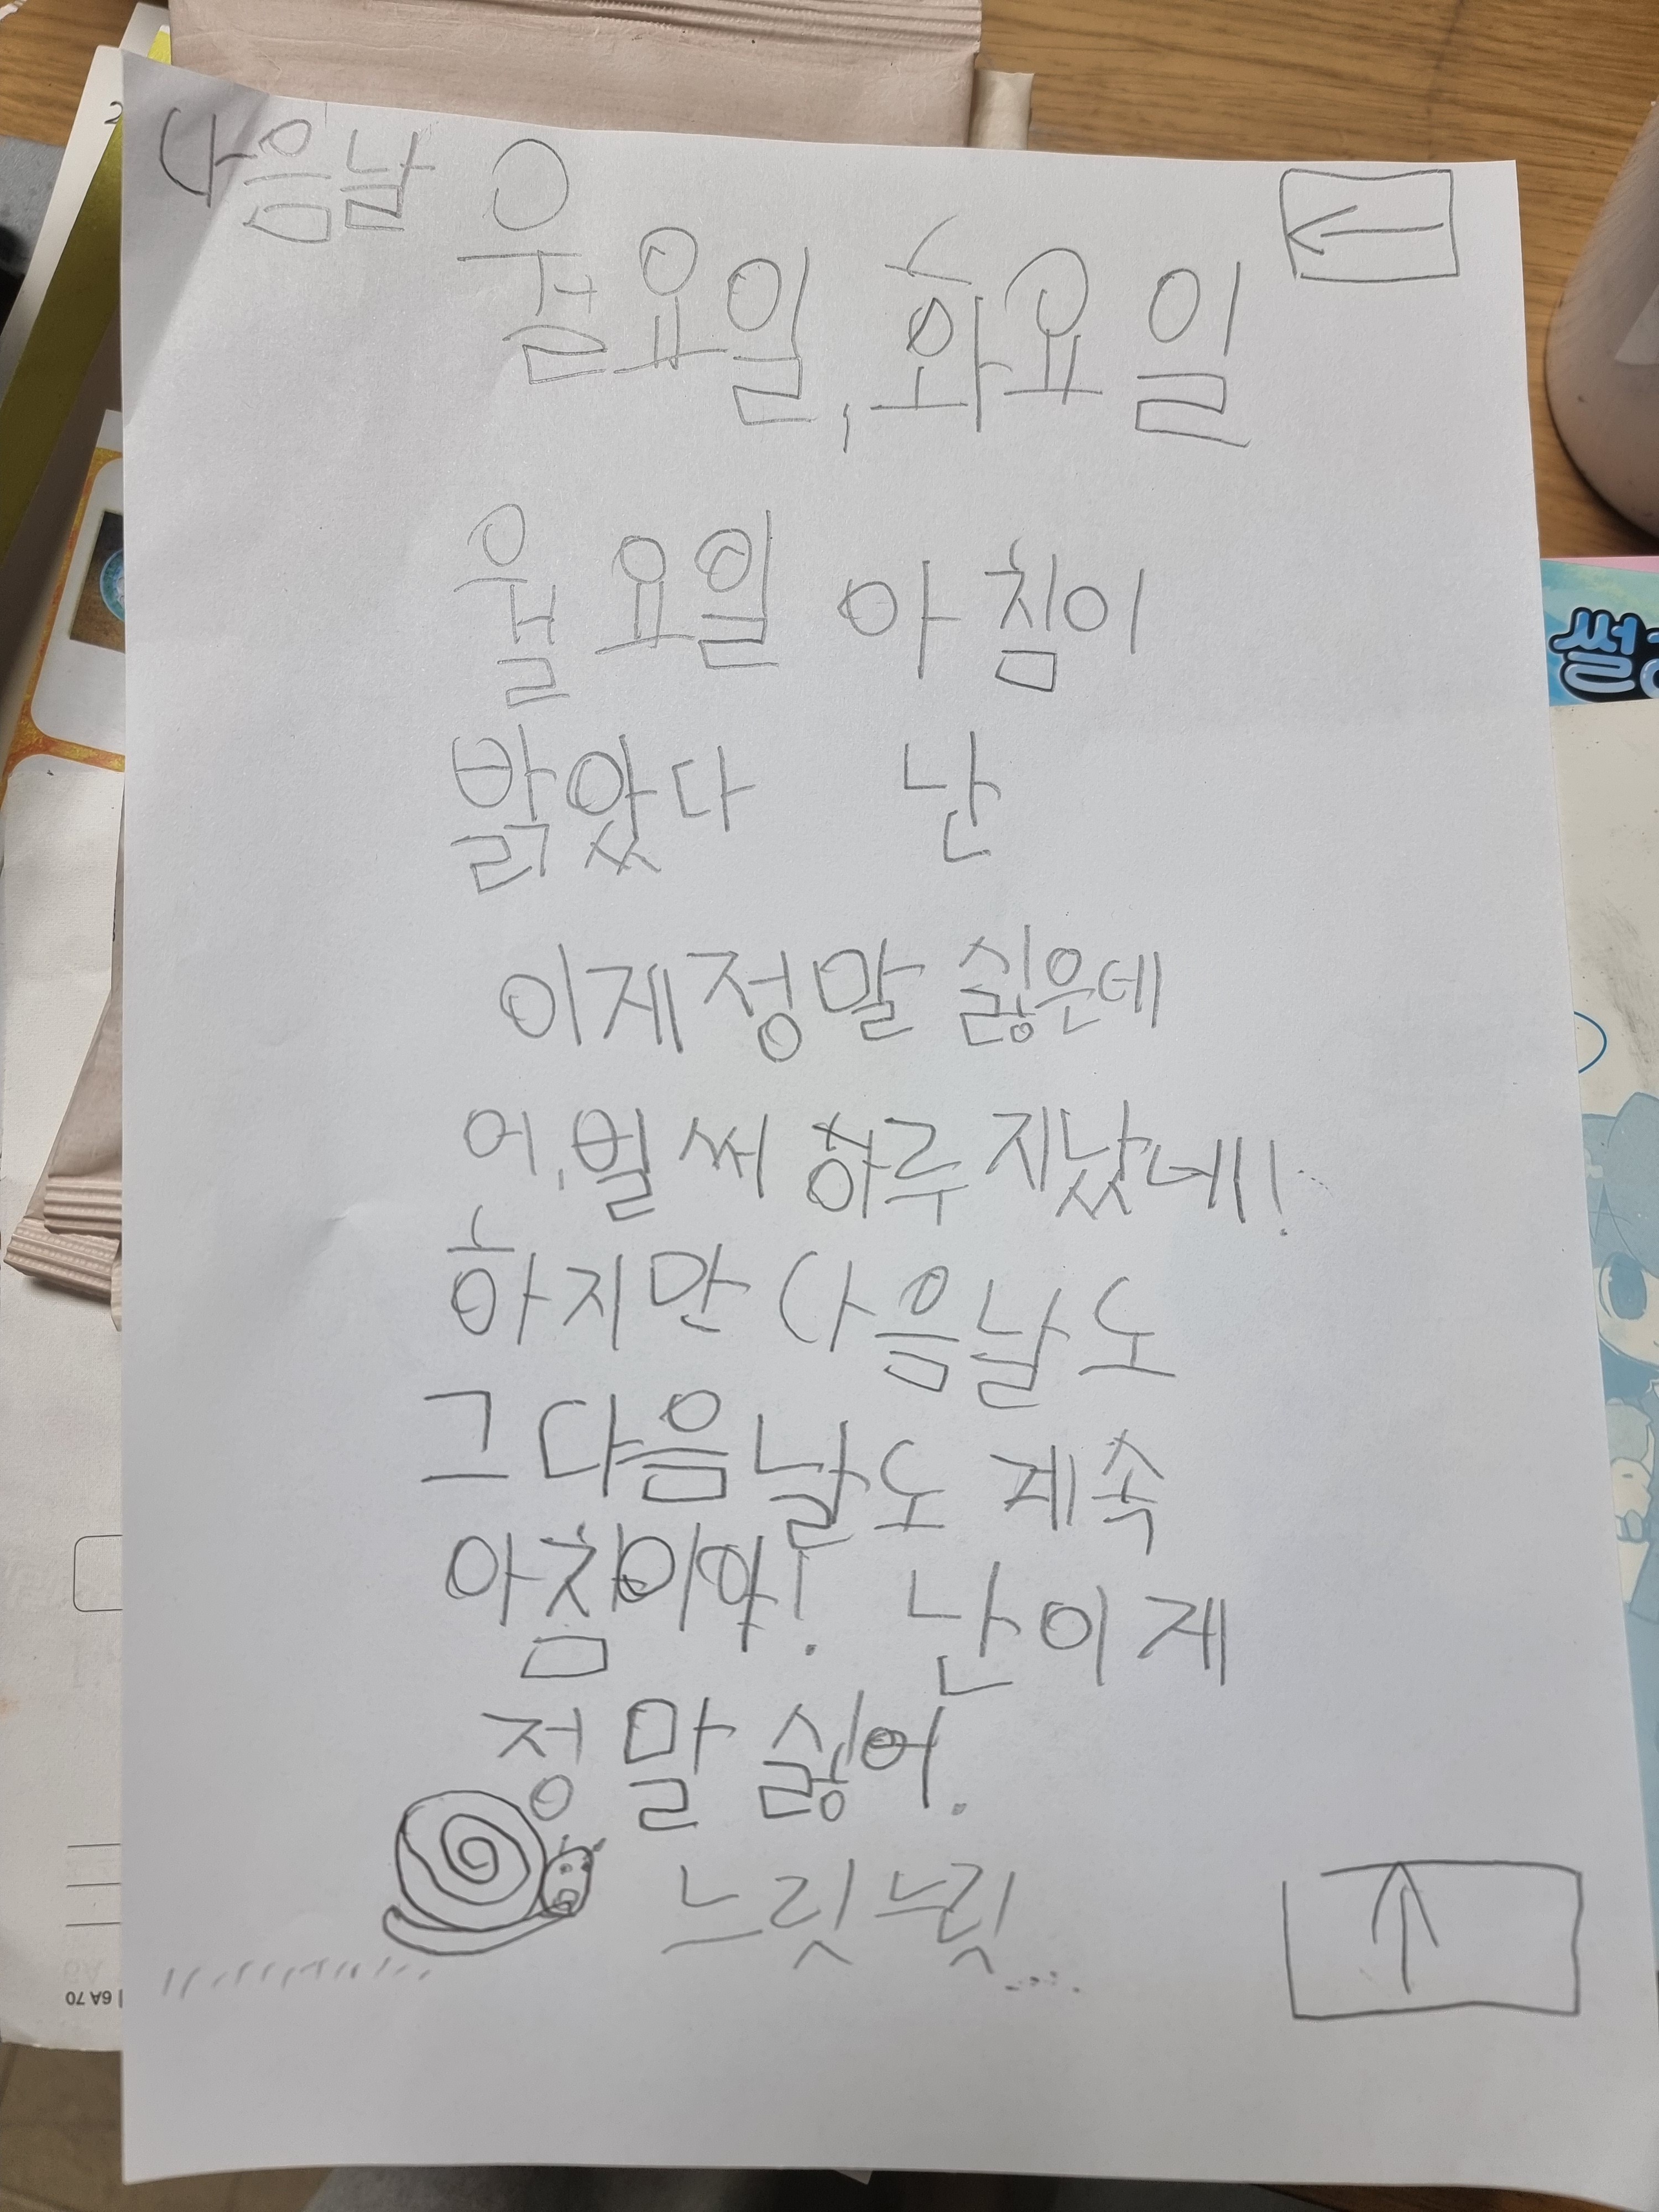 다음날
월요일, 화요일
월요일 아침이
밝았다 난
이제 정말 싫은데
어, 벌써 하루 지났네!
하지만 다음날도
그 다음날도 계속
아침이야! 난 이제
정말 싫어.
느릿느릿....
6A 70